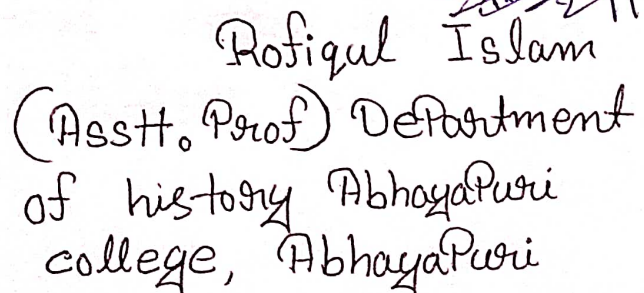 Rofiqul Islam
(Asstt. Prof) DePartment
of history AbhayaPuri
college, AbhayaPuri